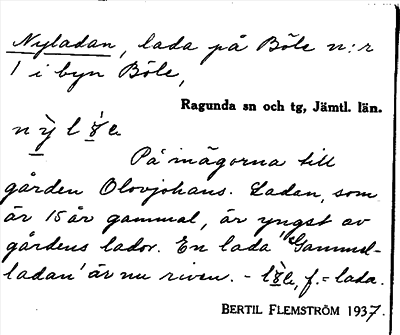 Nyladan, lada på Böle n:r
1 i byn Böle,
Ragunda sn och tg, Jämtl. län.
På inägorna till
gården Olovjohans. Ladan, som
är 15 år gammal, är yngst av
gårdens lador. En lada "Gammel-
ladan" är nu riven. - f. = lada.
BERTIL FLEMSTRÖM 1937.